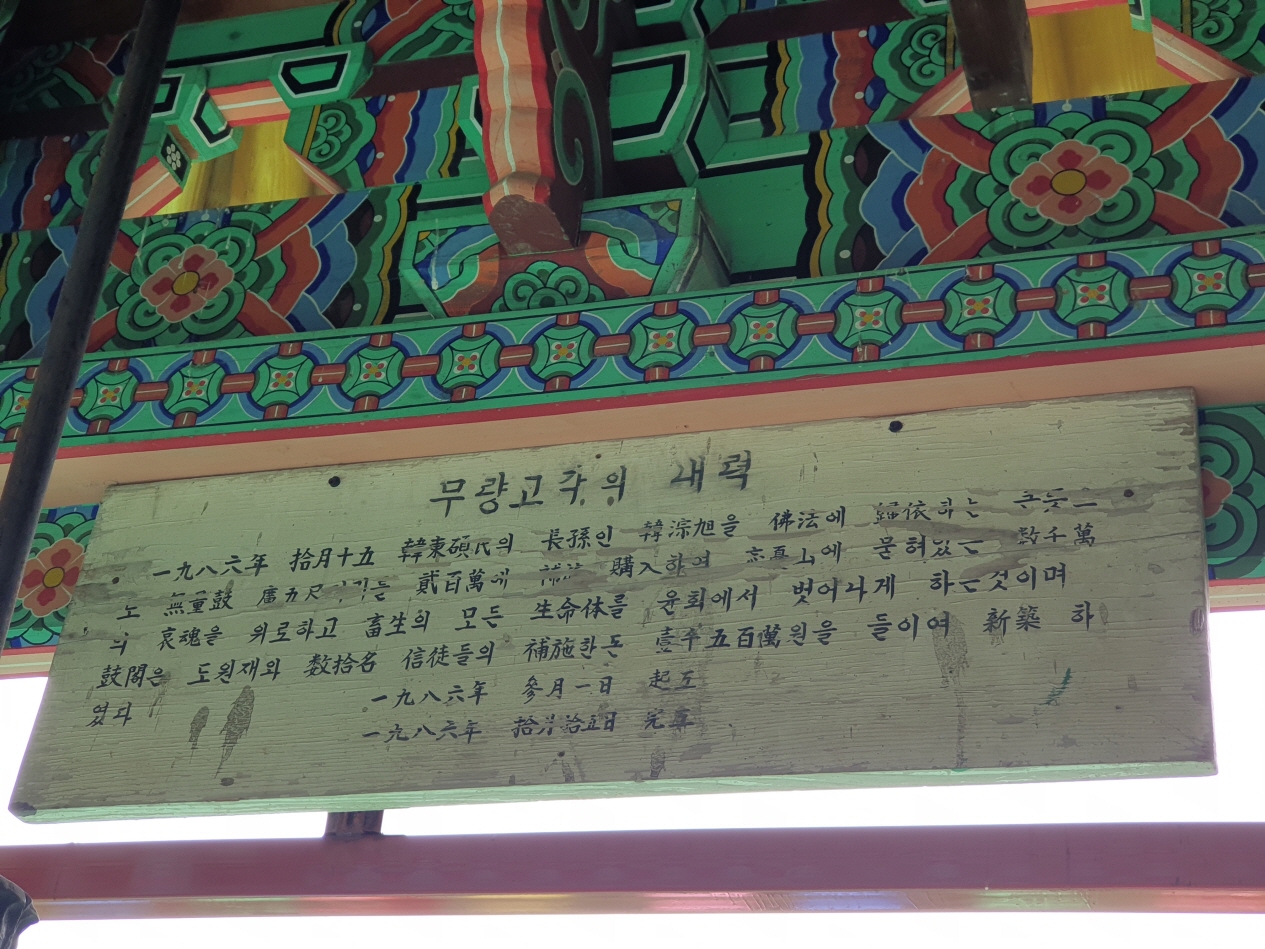 무량고각의 내력
一九八六年 拾月十五 韓東碩氏의 長孫인 韓淙旭을 佛法에 歸依하는 큰뜻으
로 無量鼓 廣五尺 貳百萬에 補施 購入하여 忘真山에 묻혀있는 數千萬
의 哀魂을 위로하고 畜生의 모든 生命体를 윤회에서 벗어나게 하는것이며
鼓閣은 도원재와 数拾名 信徒들의 補施한돈 壹千五百萬원을 들이여 新築 하
였다
一九八六年 參月一日 起工
一九八六年 拾月拾五日 完工